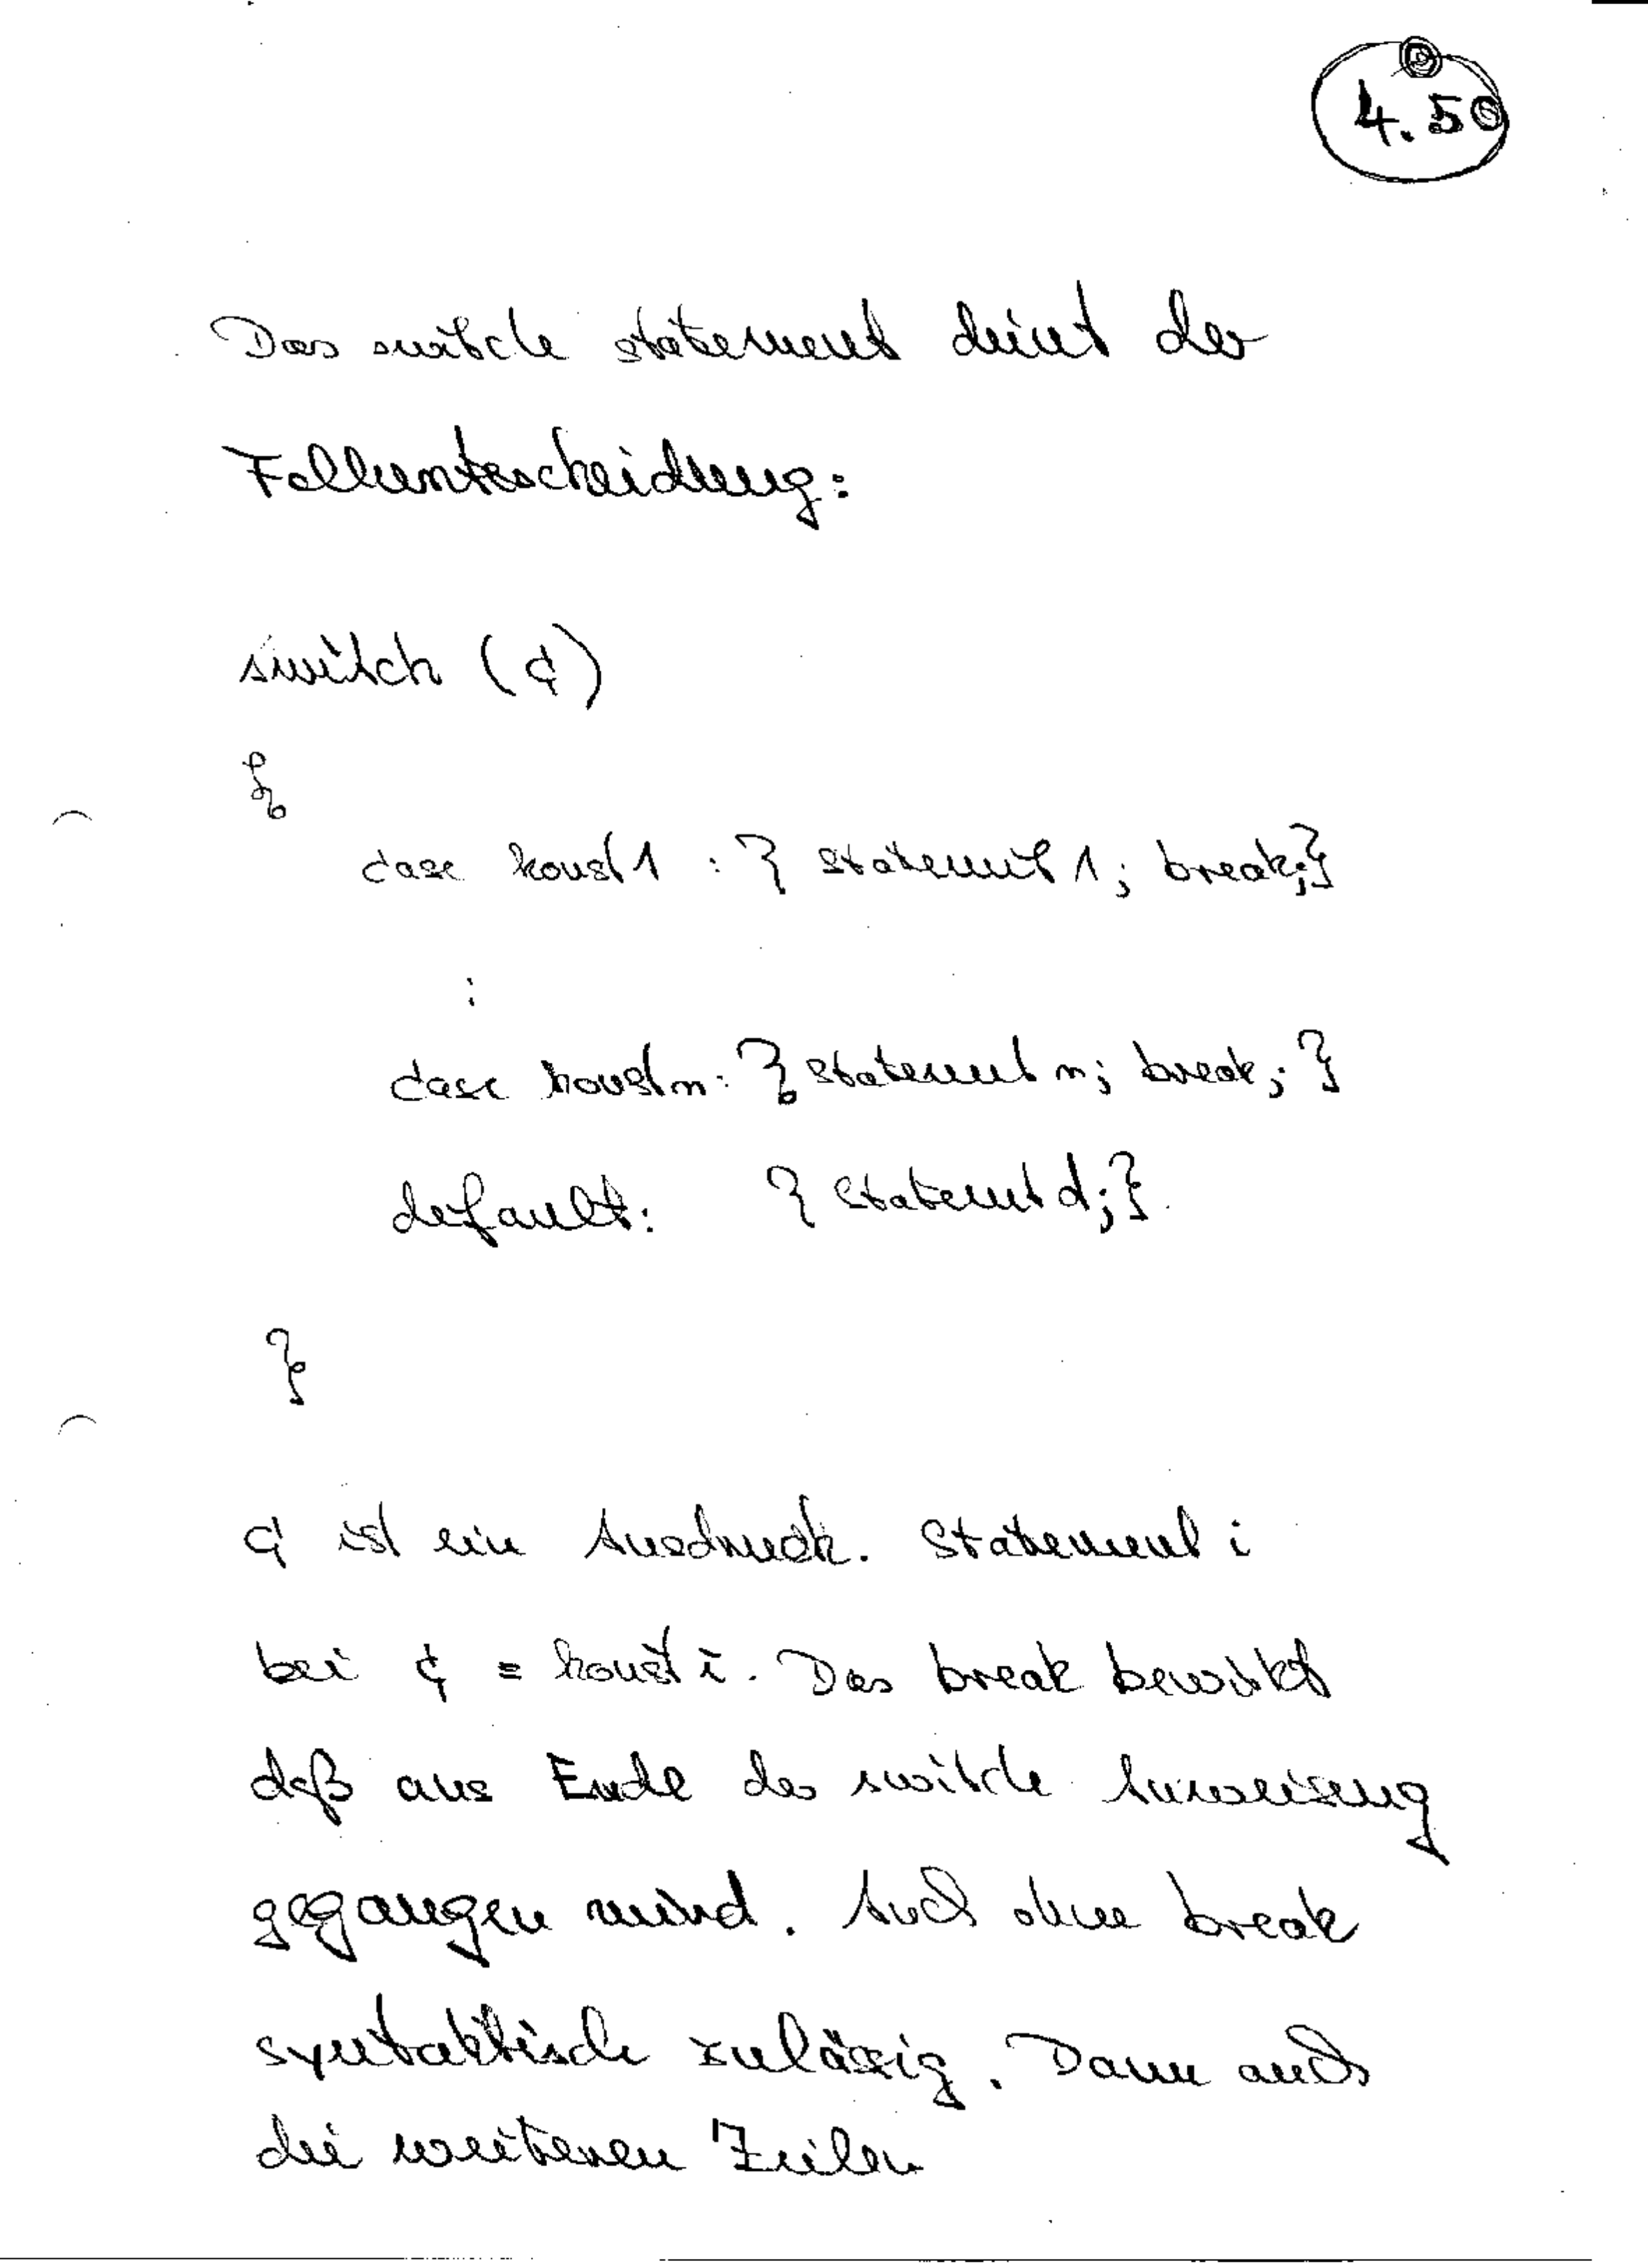 4.50
Das switch statement dient der
Fallunterscheidung:
switch (c)
{
case konst 1 : { statement 1; break;}
:
case konst n: { statement n; break; }
default: { statement d; }
}
c ist ein Ausdruck. Statement i
bei c = konst i. Das break bewirkt
daß ans Ende der switch Anweisung
gegangen wird. Auch ohne break
syntaktisch zulässig. Dann auch
die weiteren Zeilen